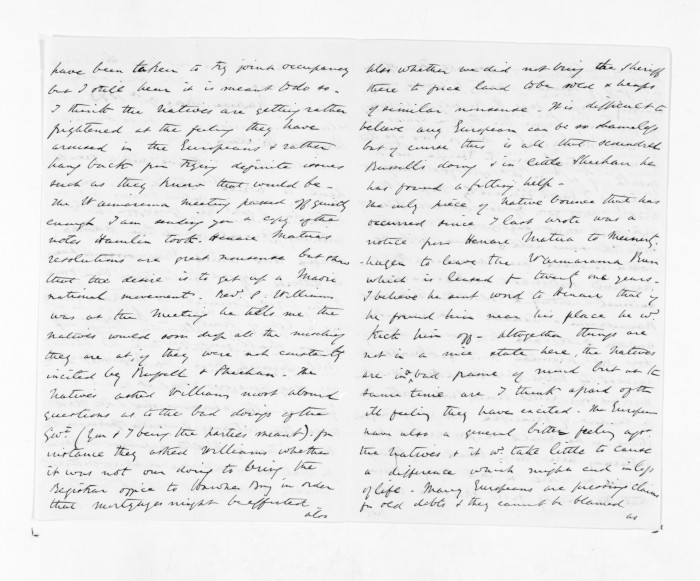 have been taken to try joint occupancy
but I still hear it is meant to do so -
I think the Natives are getting rather
frightened at the feeling they have
aroused in the Europeans & rather
hang back from trying definite issues
such as they know that would be -
The Waimarama meeting passed off quietly
enough I am sending you a copy of the
notes Hamlin took. Henare Matua's
resolutions are great nonsense but show
that the desire is to get up a Maori
national movement. Revd. S. Williams
was at the Meeting he tells me the
natives would soon drop all the mischief
they are at, if they were not constantly
incited by Russell & Sheehan. The
Natives asked Williams most absurd
questions as to the bad doings of the
Govt. (You & I being the parties meant). For
instance they asked Williams whether
it was not our doing to bring the
Registrar office to Hawkes Bay in order
that mortgages might be effected -
also
also whether we did not bring the Sheriff
there to force land to be sold & heaps
of similar nonsense. It is difficult to
believe any European can be so shameless
but of course this is all that scoundrel
Russell's doing & in little Sheehan he
has found a fitting help -
The only piece of native bounce that has
occurred since I last wrote was a
notice from Henare Matua to Meinertz-
-hagen to leave the Waimarama Run
which is leased for twenty one years -
I believe he sent word to Henare that if
he found him near his place he wd.
kick him off - Altogether things are
not in a nice state here, the Natives
are in bad frame of mind but at the
same time are I think afraid of the
ill feeling they have excited. The Europeans
have also a general bitter feeling agst
the Natives & it wd. take little to cause
a difference which might end in loss
of life - Many Europeans are pressing claims
for old debts & they cannot be blamed
as